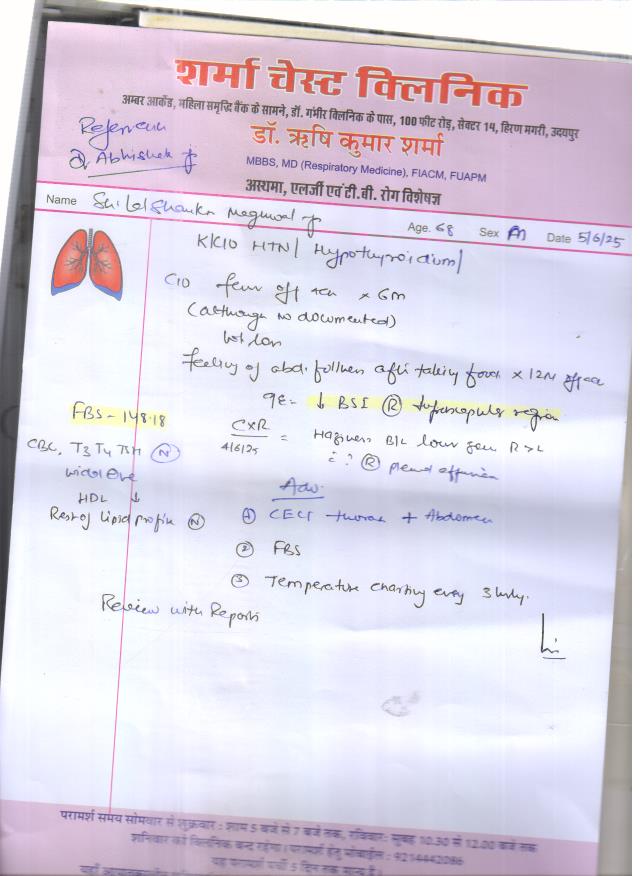 शर्मा चेस्ट क्लिनिक
अम्बर आर्केड, महिला समृद्धि बैंक के सामने, डॉ. गंभीर क्लिनिक के पास, 100 फीट रोड़, सेक्टर 14, हिरण मगरी, उदयपुर
डॉ. ऋषि कुमार शर्मा
MBBS, MD (Respiratory Medicine), FIACM, FUAPM
अस्थमा, एलर्जी एवं टी.बी. रोग विशेषज्ञ
Abhishek
Name Shankar Meghwal Age. 68 Sex M Date 5/6/25
K/C/O HTN/ Hypothyroidism/
C/O fever off × 6m
(although no documented)
wt loss
feeling of abd. fullness after taking food × 12M
↓ BSI (R) Infrascapular region
FBS - 148.18
CXR
4/6/25
= Haziness B/L lower zone R>L
? (R) pleural effusion
CBC, T3 T4 TSH (N)
widal -ve
HDL ↓
Rest of lipid profile (N)
Adv.
① CECT thorax + Abdomen
② FBS
③ Temperature charting every 3 hrly.
Review with Reports
परामर्श समय सोमवार से शुक्रवार : शाम 5 बजे से 7 बजे तक, रविवार: सुबह 10.30 से 12.00 बजे तक
शनिवार को क्लिनिक बन्द रहेगा। परामर्श हेतु मोबाईल : 9214442086
यह परामर्श पर्ची 5 दिन तक मान्य है।